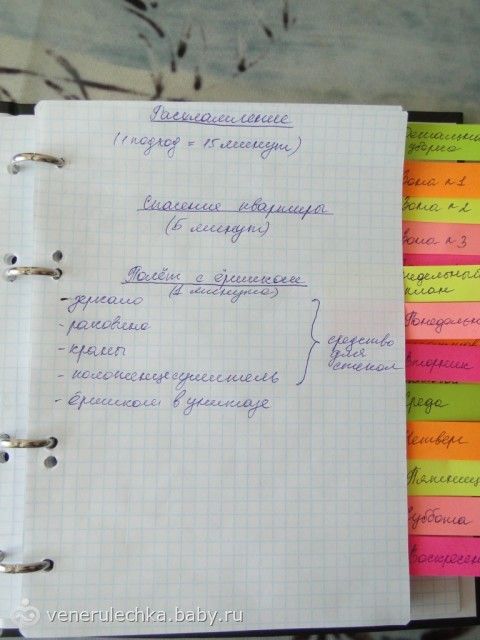 Расхламление
(1 подход = 15 минут)
Спасение квартиры
(5 минут)
Полёт с ёршиком
(1 минута)
- зеркало
- раковина
- краны
- полотенцесушитель
- ёршиком в унитазе
средство
для
стекол
уборка
Зона n 1
Зона n 2
Зона n 3
план
Понедельн
Вторник
Среда
Четверг
Пятниц
Суббота
Воскресен
venerulechka.baby.ru